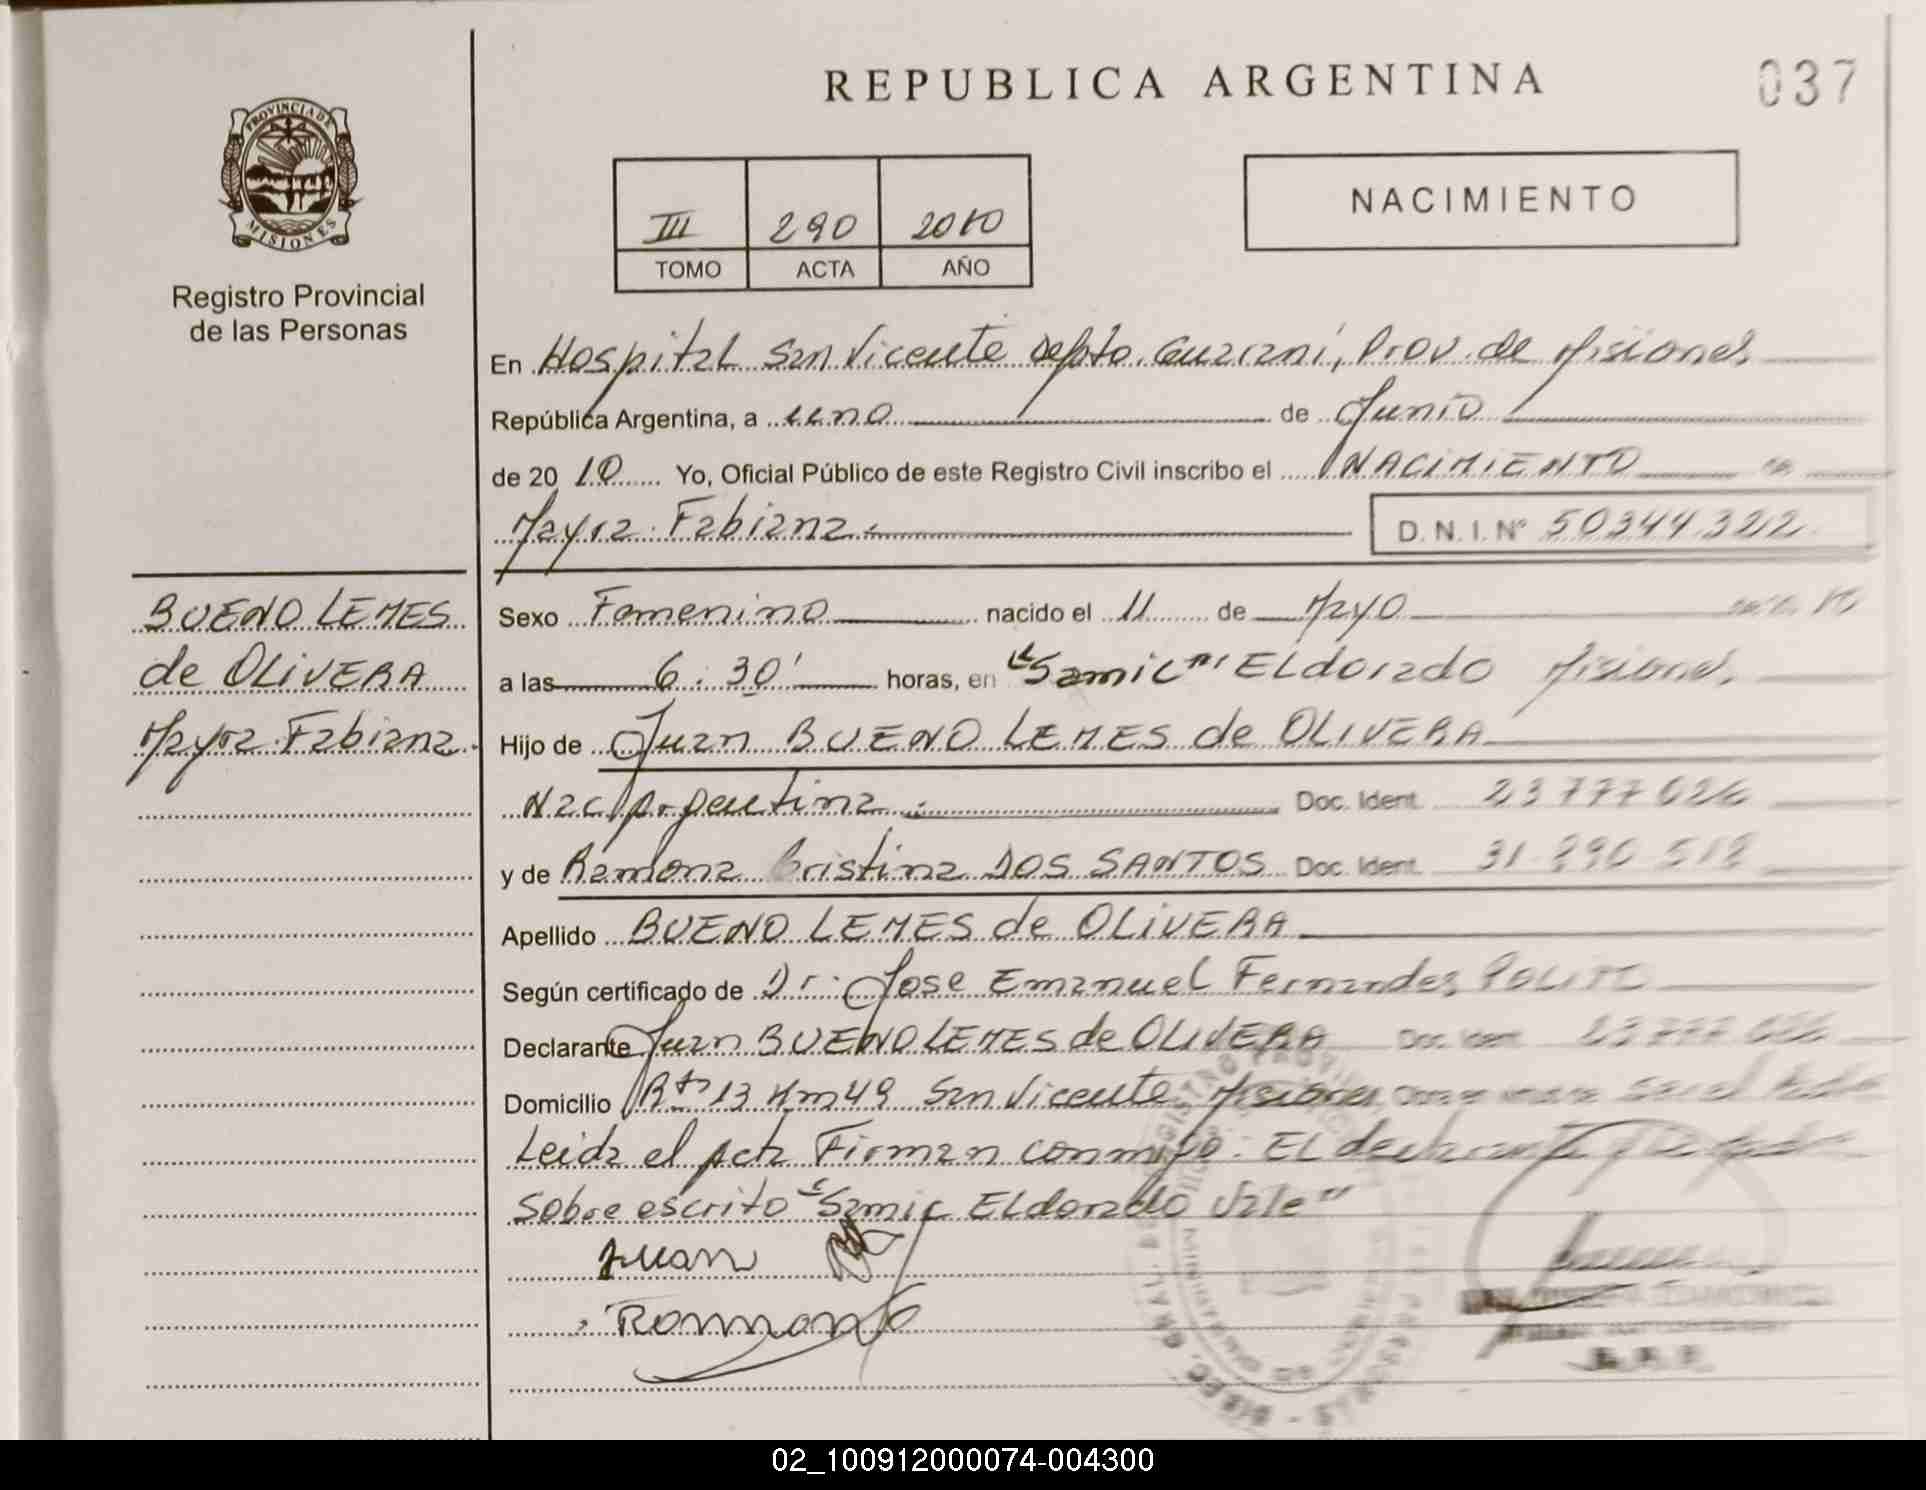 REPUBLICA ARGENTINA
037
PROVINCIA DE
MISIONES
Registro Provincial
de las Personas
III 290 2010
TOMO ACTA AÑO
NACIMIENTO
En Hospital San Vicente Depto. Guaraní, Prov. de Misiones
República Argentina, a uno de Junio
de 2010 Yo, Oficial Público de este Registro Civil inscribo el NACIMIENTO
Mayra Fabiana D.N.I. Nº 50344322
BUENO LEMES
de OLIVERA
Mayra Fabiana
Sexo Femenino nacido el 11 de Mayo
a las 6:30' horas, en "Samic" Eldorado Misiones
Hijo de Juan BUENO LEMES de OLIVERA
Nac Argentina Doc. Ident. 23 777 026
y de Ramona Cristina DOS SANTOS Doc. Ident. 31.890 512
Apellido BUENO LEMES de OLIVERA
Según certificado de Dr. Jose Emanuel Fernandez POLITO
Declarante Juan BUENO LEMES de OLIVERA Doc. Ident. 23 777 026
Domicilio Rta 13 Km 49 San Vicente Misiones
Leida el Acta Firman conmigo: EL declarante y la Madre
Sobre escrito "Samic ELdorado Vale"
Juan
Romona
02_100912000074-004300